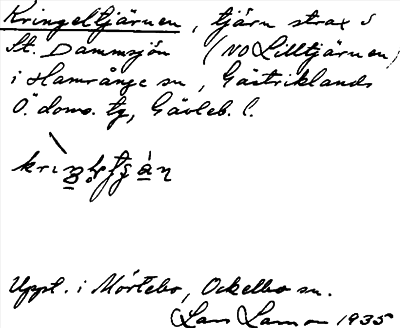 Kringeltjärnen, tjärn strax S
St. Dammsjön (NO Lilltjärnen)
i Hamrånge sn, Gästriklands
Ö. doms. tg, Gävleb. l.
Uppt. i Mörtebo, Ockelbo sn.
Lars Larson 1935